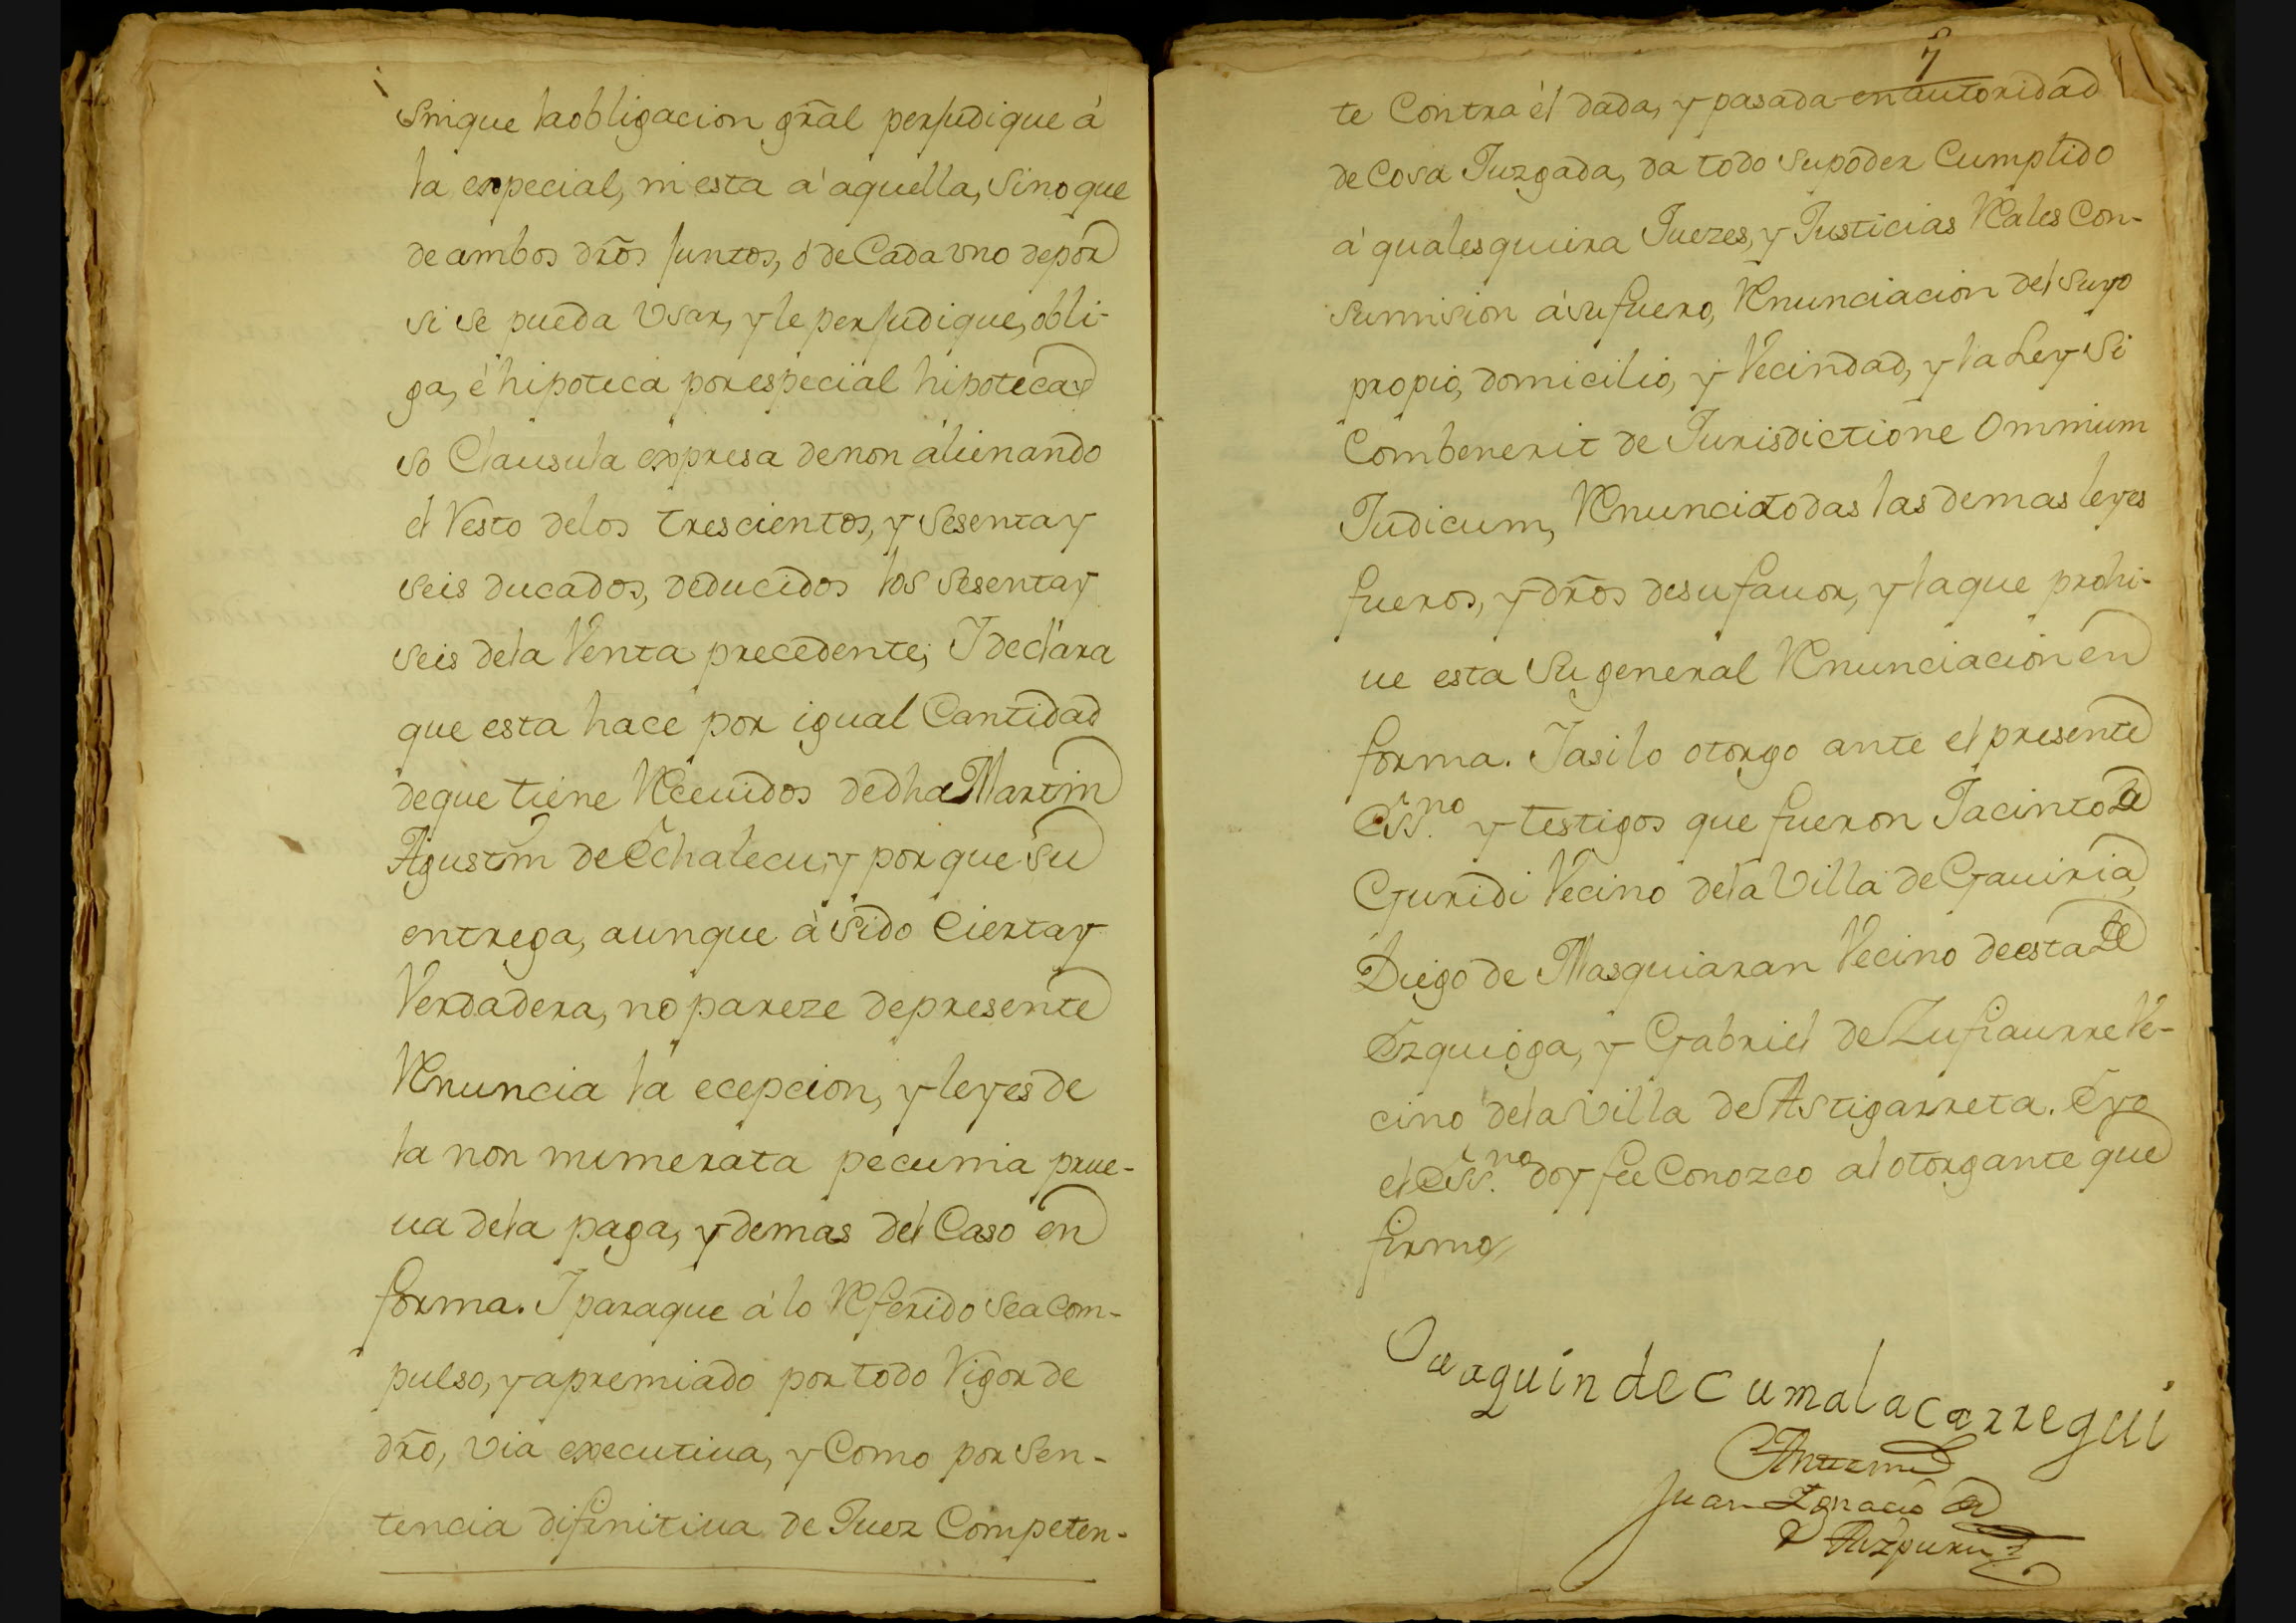 Sinque laobligacion gr̃al perjudique á
la expecial, ni esta á aquella, Sinoque
de ambos dr̃os juntos, ó de Cada vno depor
si se pueda Vsar, y le perjudique, obli-
ga, é hipoteca por especial hipoteca y
so Clausula expresa de non alienando
el Resto delos trescientos, y Sesenta y
seis ducados, deducidos los Sesenta y
seis dela Venta precedente; I declara
que esta hace por igual Cantidad
deque tiene Receuidos dedho Martin
Agustin de Echalecu, y por que su
entrega, aunque á sido Cierta y
Verdadera, no pareze depresente
Renuncia la ecepcion, y leyes de
la non numerata pecunia prue-
ua dela paga, y demas del Caso en
forma. I paraque á lo Referido sea com-
pulso, y apremiado por todo Rigor de
dr̃o, via executiua, y Como por Sen-
tencia difinitiua de Juez Competen-
7
te Contra él dada, y pasada en autoridad
de Cosa Juzgada, da todo su poder Cumplido
á qualesquiera Juezes, y Justicias Reales Con-
sumision ásu fuero, Renunciacion del suyo
propio, domicilio, y Vecindad, y la Ley Si
Combenerit de Jurisdictione Omnium
Judicum, Renuncia todas las demas leyes
fueros, y dr̃os desu fauor, y la que prohi-
ue esta Su general Renunciacion en
forma. I asi lo otorgo ante el presente
Ess.no y testigos que fueron Jacinto de
Guridi Vecino dela Villa de Gauiria,
Diego de Masquiaran Vecino de esta de
Ezquioga, y Gabriel de Zufiaurre Ve-
cino dela Villa de Astigarreta. E yo
el Ess.no doy fee Conozco al otorgante que
firmo
Juaquin de Cumalacarregui
Antemi
Juan Ignacio de
Aizpuru